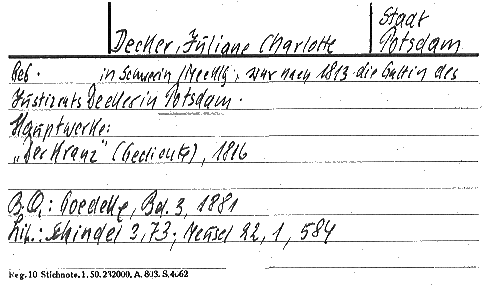 Decker, Juliane Charlotte
Stadt
Potsdam
Geb. in Schwerin (Meckl.), war nach 1813 die Gattin des
Justizrats Decker in Potsdam.
Hauptwerke:
„Der Kranz" (Gedichte), 1816
B.Q.: Goedeke, Bd. 3, 1881
Lit.: Schindel 3,73; Meusel 22, 1, 584
Reg. 10 Stichnote. 1. 50. 232000. A. 803. S. 4662